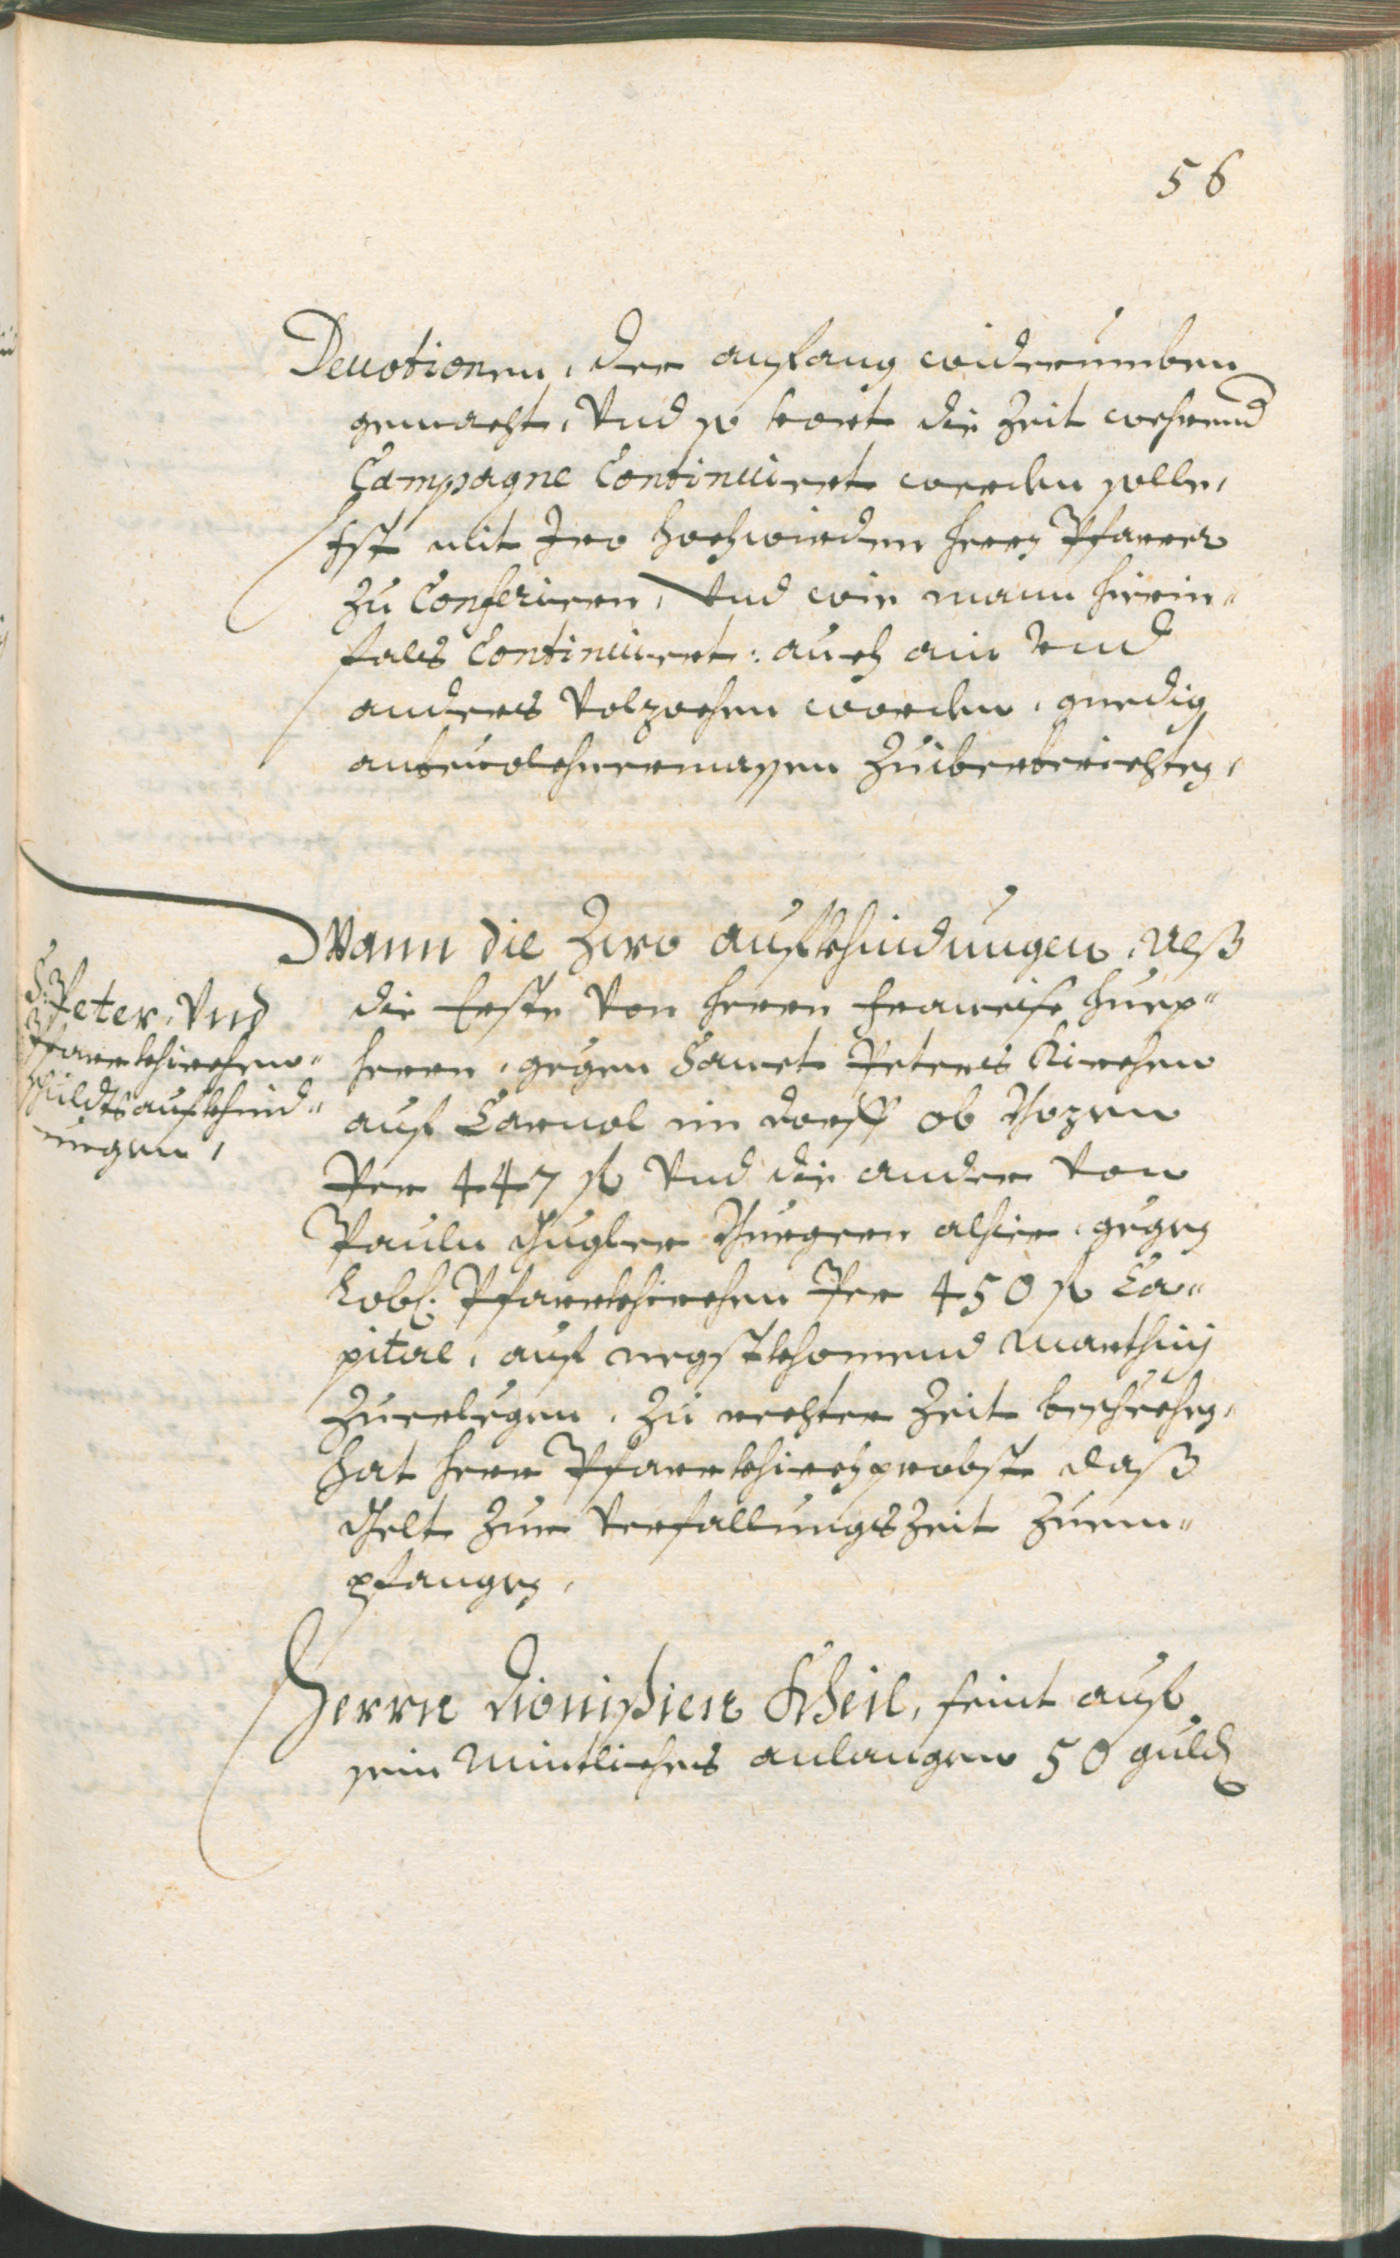 56
Deuotionen, der anfang widerumben
gemacht, Vnd so lang die Zeit wehrend
Campagne Continuiert werden solle,
Ist mit Iro Hochwürden Herrn Pfarrer
zu Conferiren, Vnd wie mann hierin¬
fals Continuiert: auch ain Vnd
anders Volzochen worden, gnedig
anbeuolchnermassen Zuüberberichten,
S: Peter, Vnd
Pfarrkhirchen¬
schuldts aufkhind¬
ungen,
Wann die Zwo aufkhindungen, Alß
die Erste Von Herrn Francisc Huep¬
herrn, gegen Sanct Peters Kirchen
auf Carnol im Dorff ob Bozen
Per 447 fl Vnd die ander Von
Pauln Gugler Burgern alhier, gegen
Lobl: Pfarrkhirchen Per 450 fl Ca¬
pital, auf negstkhomend Marthinj
Zuerlegen, Zu rechter Zeit beschechen,
hat Herr Pfarrkhirchprobst daß
Gelt Zur Verfallungs Zeit Zuem¬
pfangen,
Herrn Dionisien Kheil, seint auf
sein Mintliches anlangen 50 guld